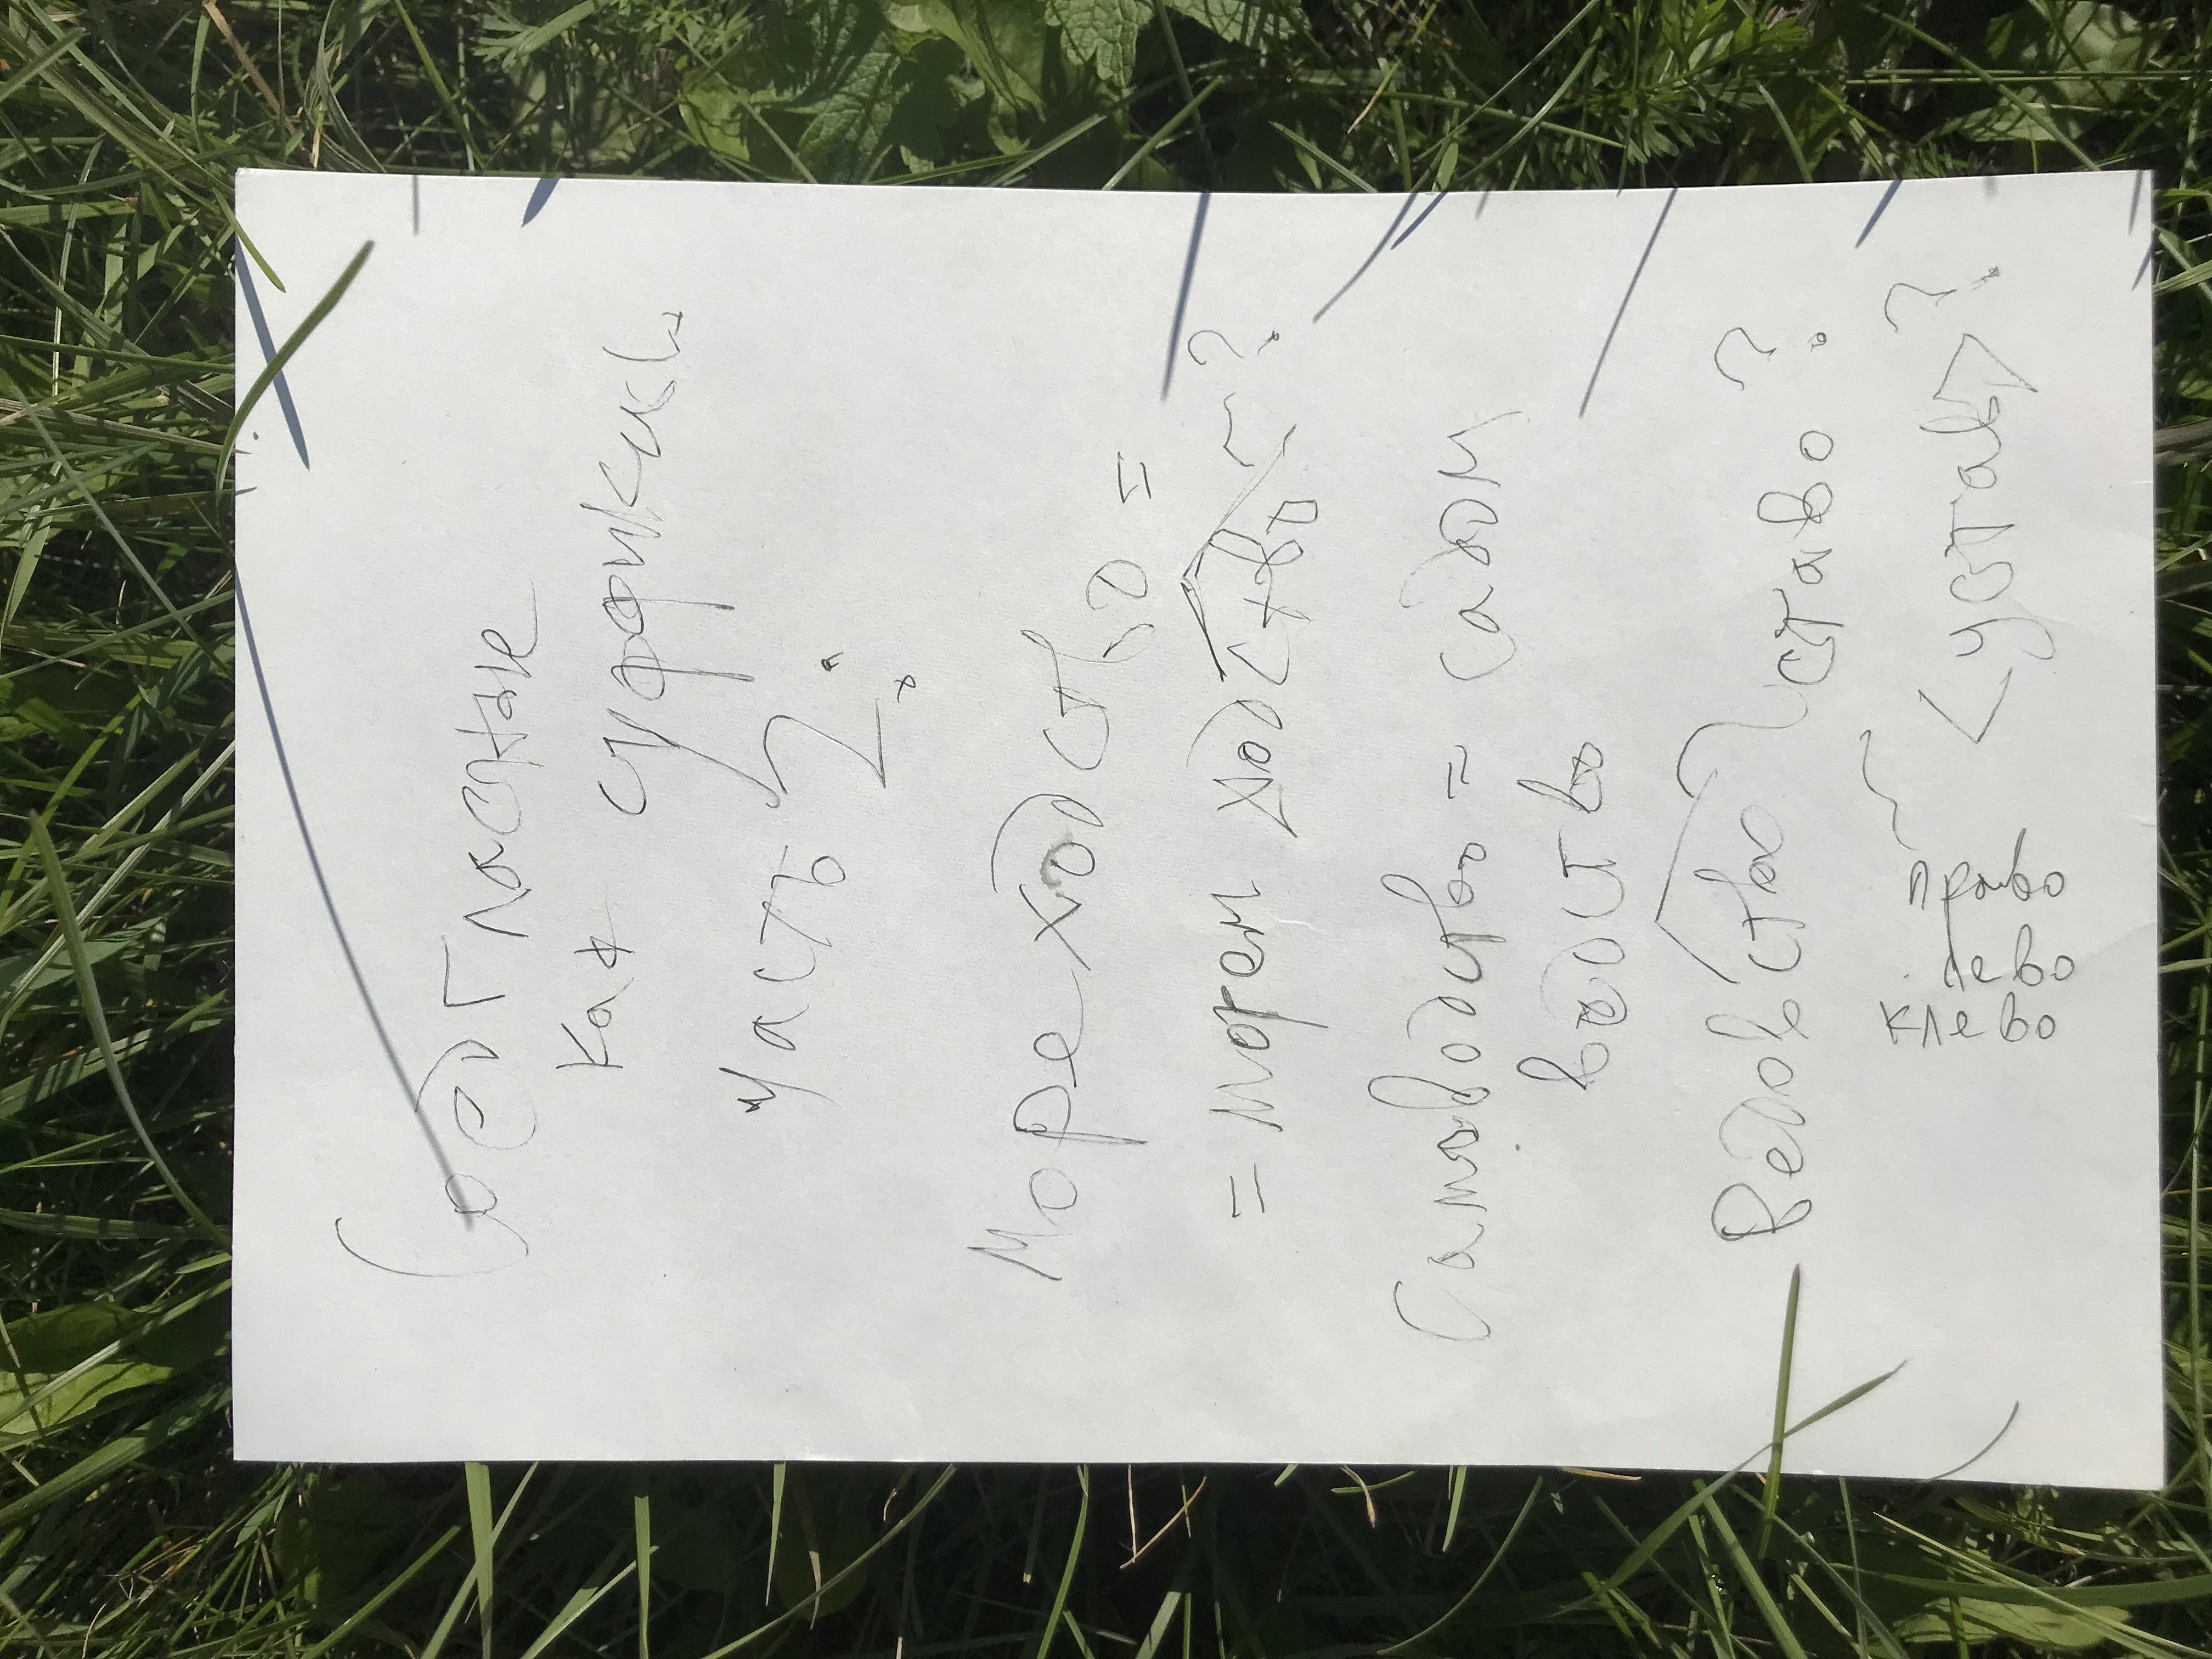 Соедгласные
как суффиксы
часть 2:
Мореходство =
= морем ходство ~ ?
Самоводство = садом
водство
Ведовство
ставо?
<устав>?
право
лево
клево